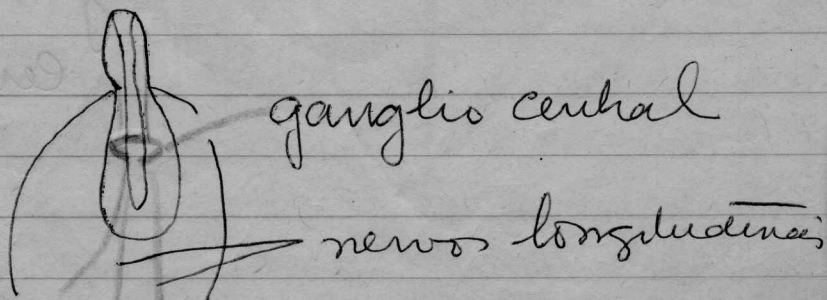 ganglio central
nervos longitudinais